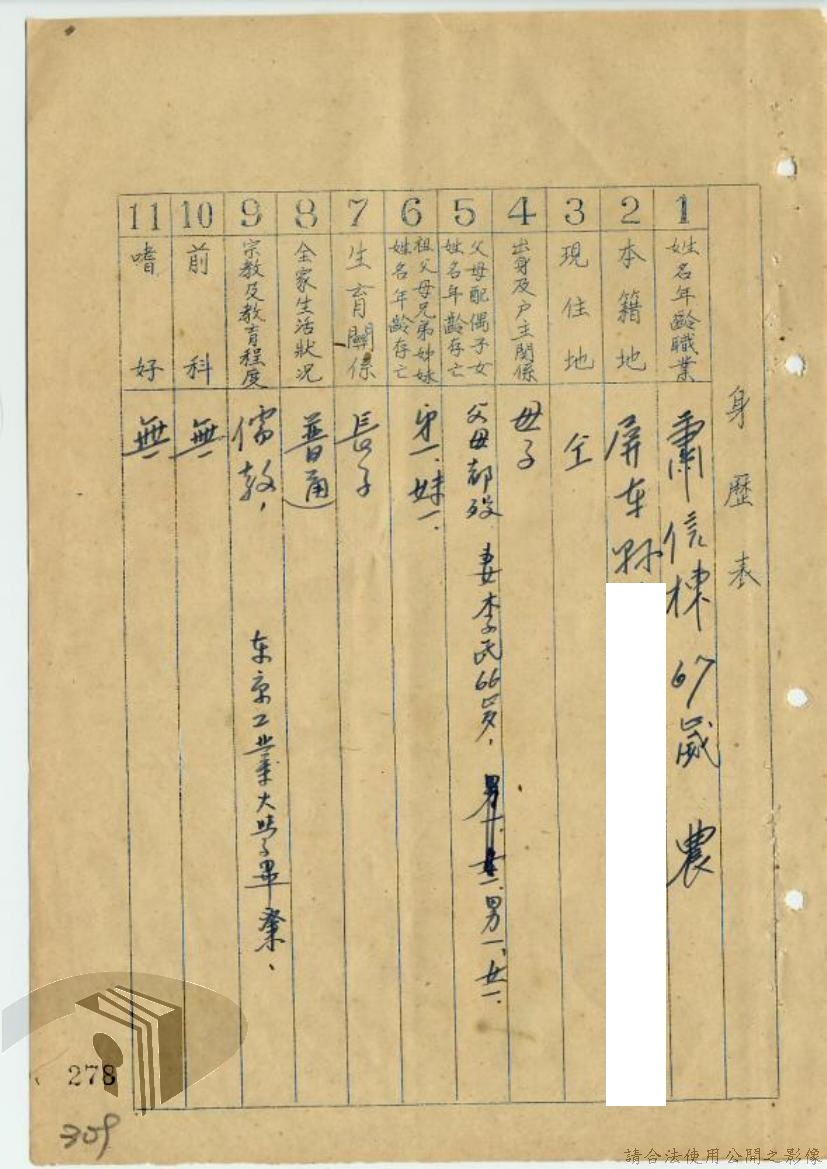 身歷表
1
姓名年齡職業
肅信棟 67歲 農
2
本籍地
屏东県
3
現住地
仝
4
出身及户主関係
母子
5
父母配偶子女
姓名年齡存亡
父母都歿 妻李氏66岁, 男一、女一
6
祖父母兄弟姊妹
姓名年齡存亡
弟一、妹一、
7
生育關係
長子
8
全家生活狀况
普通
9
宗教及教育程度
儒教, 东京工業大學畢業、
10
前科
無
11
嗜好
無
278
309
請合法使用公開之影像